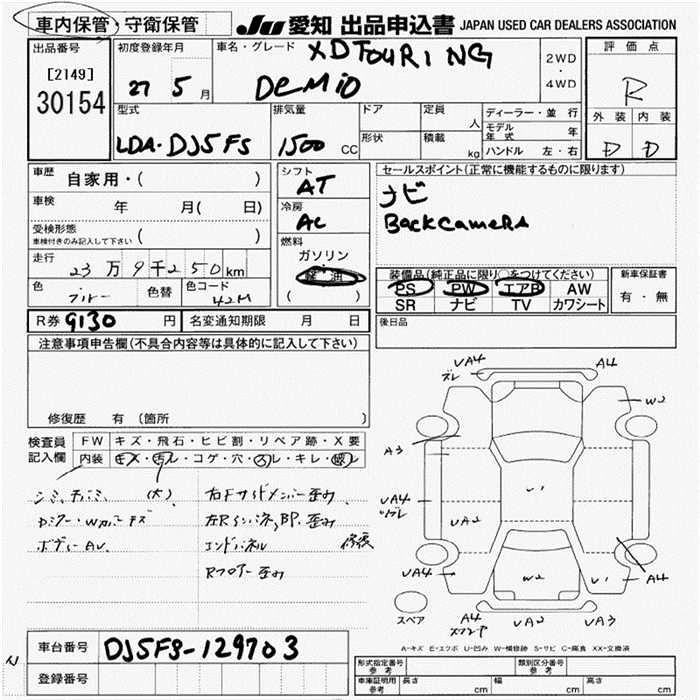 車内保管・守衛保管
JU 愛知 出品申込書 JAPAN USED CAR DEALERS ASSOCIATION
出品番号
[2149]
30154
初度登録年月
27 5月
車名・グレード
XD TOURING
DEMIO
2WD
・
4WD
評価点
R
外装 内装
D D
型式
LDA-DJ5FS
排気量
1500 CC
ドア
形状
定員
人
積載
kg
ディーラー・並行
モデル年式 年
ハンドル 左・右
車歴
自家用・( )
車検
年 月( 日)
受検形態
車検付きのみ記入して下さい ( )
走行
23万9千250km
色
ブルー
色替
色コード
42M
シフト
AT
冷房
AC
燃料
ガソリン
軽油
( )
セールスポイント(正常に機能するものに限ります)
ナビ
Back camera
装備品(純正品に限り○をつけてください)
PS PW エアB AW
SR ナビ TV カワシート
新車保証書
有・無
後日品
R券 9130 円
名変通知期限 月 日
注意事項申告欄(不具合内容等は具体的に記入して下さい)
修復歴 有(箇所 )
検査員
記入欄
FW キズ・飛石・ヒビ割・リペア跡・X要
内装 キズ・汚レ・コゲ・穴・スレ・キレ・破レ
シミ、 (大)
Dミラー・Wカバーキズ
ボデーAU
右Fサイドメンバー歪み
歪み
エンドパネル 修復
Rフロアー歪み
UA4
ズレ
A4
W2
A3
UA4
ズレ
UA2
U1
UA4
W2
U1
A4
スペア
A4
UA2
UA3
A-キズ E-エクボ U-凹み W-補修跡 S-サビ C-腐食 XX-交換済
車台番号
DJ5FS-129703
登録番号
形式指定番号
参考
類別区分番号
参考
車庫証明用
参考
長さ cm
幅 cm
高さ cm